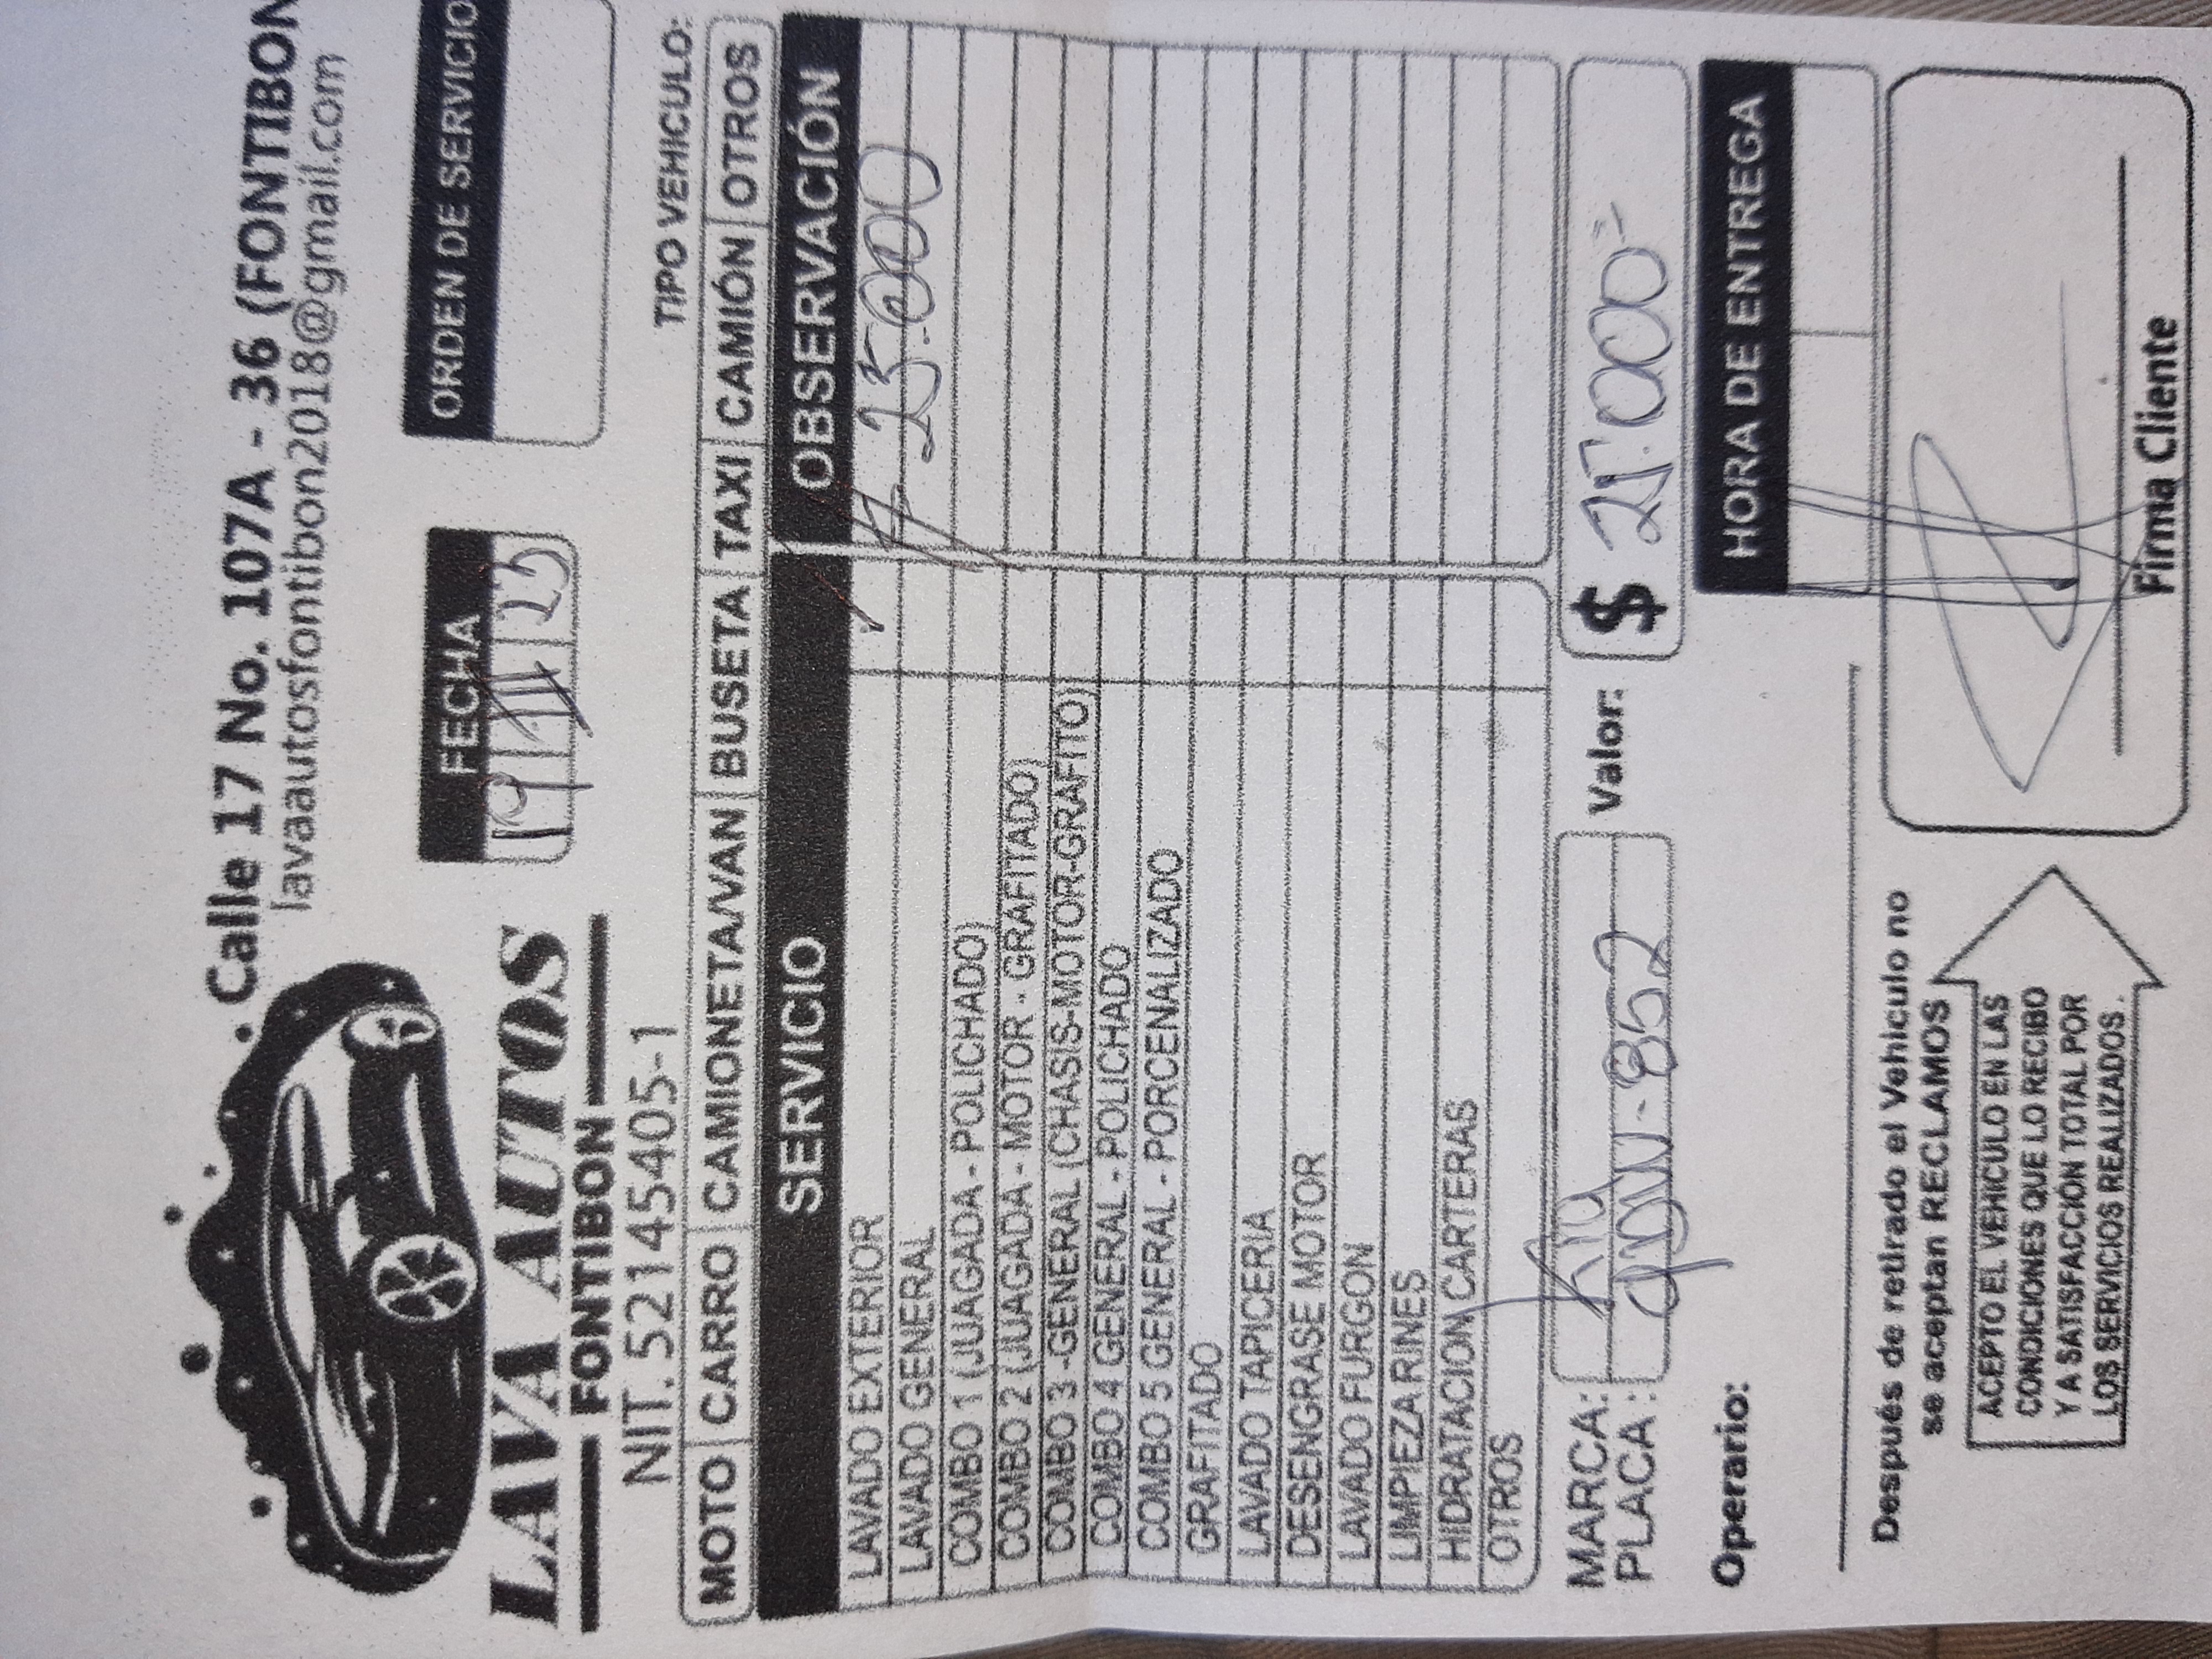 Calle 17 No. 107A - 36 (FONTIBON
lavaautosfontibon2018@gmail.com
LAVA AUTOS
FONTIBON
NIT. 52145405-1
FECHA
19 23
ORDEN DE SERVICIO
TIPO VEHICULO:
MOTO CARRO CAMIONETA/VAN BUSETA TAXI CAMIÓN OTROS
SERVICIO OBSERVACIÓN
LAVADO EXTERIOR
LAVADO GENERAL 25.000
COMBO 1 (JUAGADA - POLICHADO)
COMBO 2 (JUAGADA - MOTOR - GRAFITADO)
COMBO 3 -GENERAL (CHASIS-MOTOR-GRAFITO)
COMBO 4 GENERAL - POLICHADO
COMBO 5 GENERAL - PORCENALIZADO
GRAFITADO
LAVADO TAPICERIA
DESENGRASE MOTOR
LAVADO FURGON
LIMPIEZA RINES
HIDRATACION CARTERAS
OTROS
MARCA: Kia
PLACA: -852
Valor: $ 25.000=
Operario:
HORA DE ENTREGA
Después de retirado el Vehiculo no
se aceptan RECLAMOS
ACEPTO EL VEHICULO EN LAS
CONDICIONES QUE LO RECIBO
Y A SATISFACCION TOTAL POR
LOS SERVICIOS REALIZADOS.
Firma Cliente